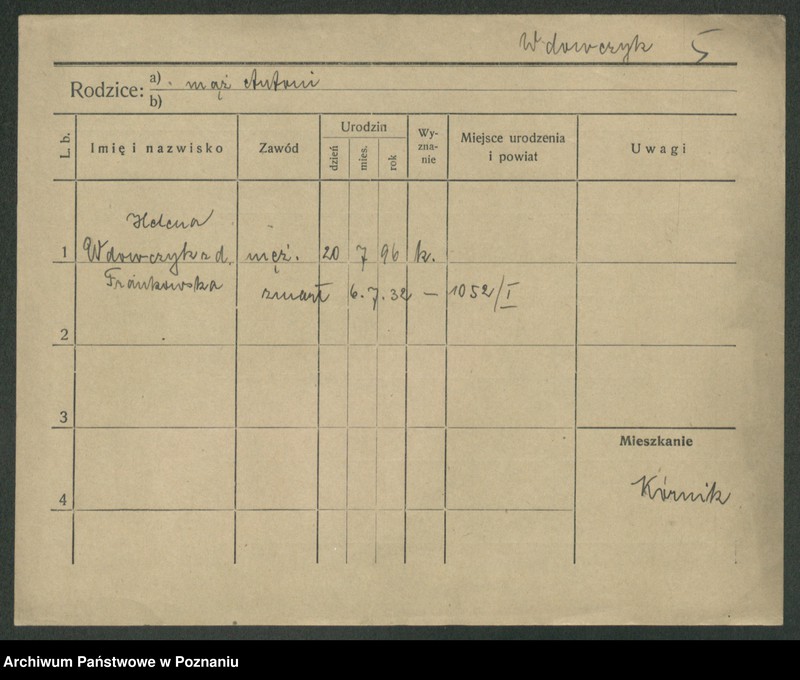 Wdowczyk 5
Rodzice: a) . mąż Antoni
b)
L. b. Imię i nazwisko Zawód Urodzin dzień mies. rok Wy-zna-nie Miejsce urodzenia i powiat Uwagi
Helena
1 Wdowczyk z d. męż. 20 7 96 k.
Frankowska
zmarł 6. 7. 32 — 1052/I
2
3
Mieszkanie
Kórnik
4
Archiwum Państwowe w Poznaniu